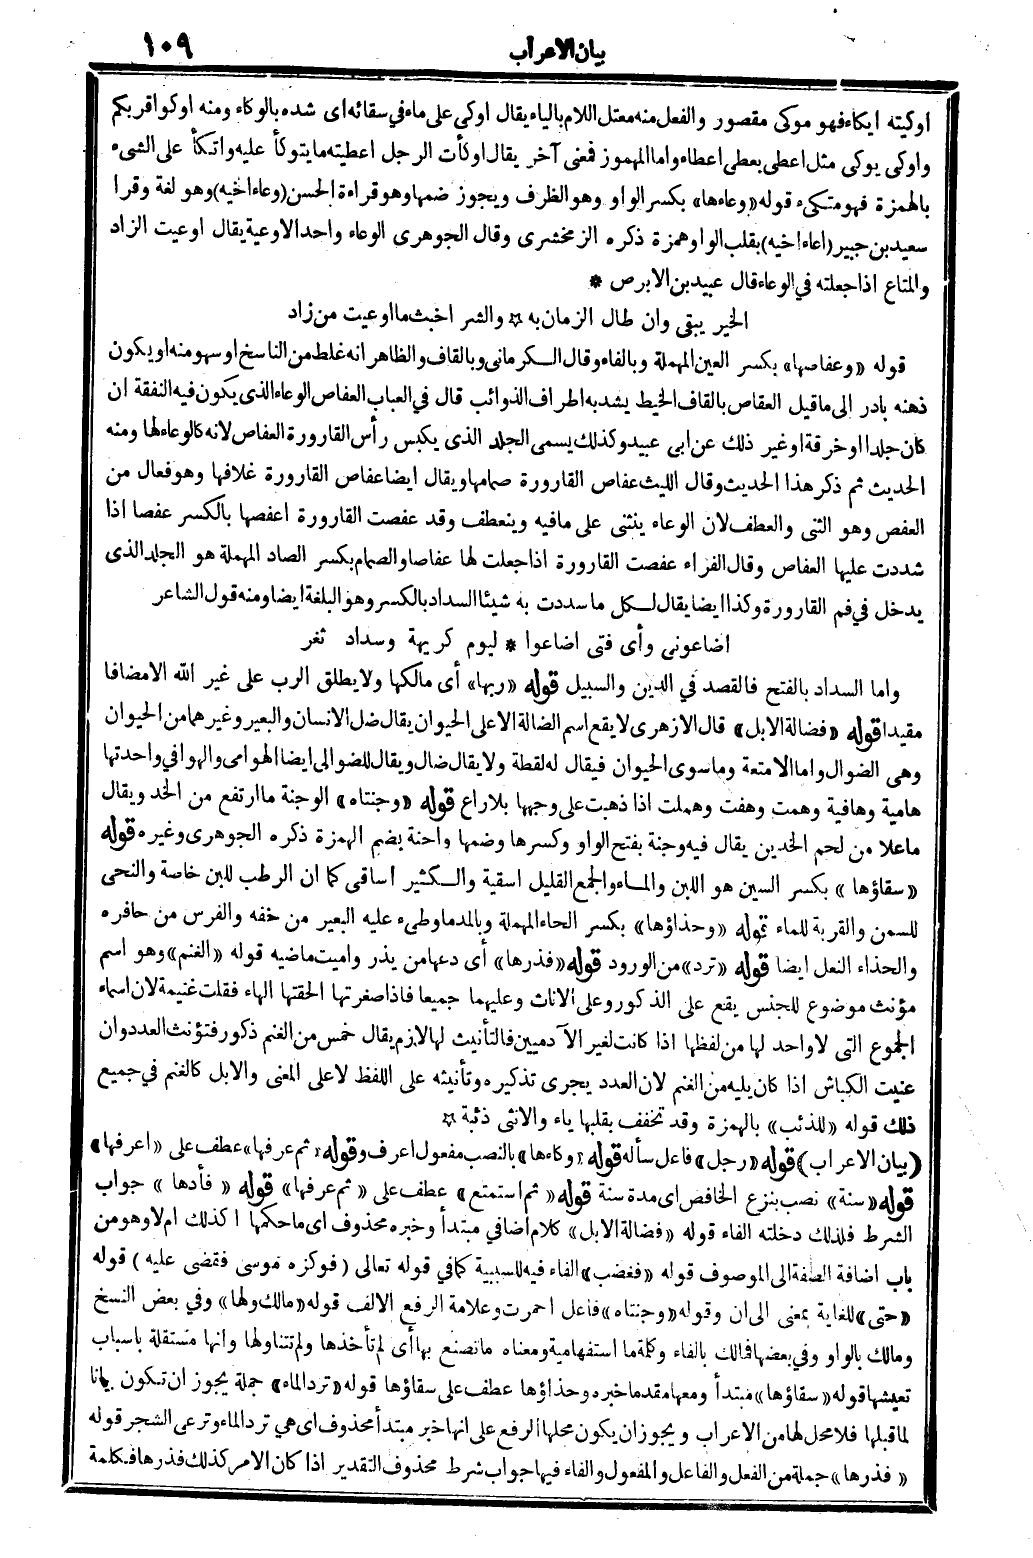 بيان الاعراب ١٠٩
اوكيته ايكاء فهو موكى مقصور والفعل منه معتل اللام بالياء يقال اوكى على ماء في سقائه اى شده بالوكاء ومنه اوكوا قربكم
واوكى يوكى مثل اعطى يعطى اعطاء واما المهموز فمعنى آخر يقال اوكأت الرجل اعطيته ما يتوكأ عليه واتكأ على الشىء
بالهمزة فهو متكىء قوله «وعاءها» بكسر الواو وهو الظرف ويجوز ضمها وهو قراءة الحسن (وعاء اخيه) وهو لغة وقرا
سعيد بن جبير (اعاء اخيه) بقلب الواو همزة ذكره الزمخشرى وقال الجوهرى الوعاء واحد الاوعية يقال اوعيت الزاد
والمتاع اذا جعلته في الوعاء قال عبيد بن الابرص *
الخير يبقى وان طال الزمان به ☆ والشر اخبث ما اوعيت من زاد
قوله «وعفاصها» بكسر العين المهملة وبالفاء وقال الكرمانى وبالقاف والظاهر انه غلط من الناسخ او سهو منه او يكون
ذهنه بادر الى ما قيل العقاص بالقاف الخيط يشد به اطراف الذوائب قال في العباب العفاص الوعاء الذى يكون فيه النفقة ان
كان جلدا او خرقة او غير ذلك عن ابى عبيد وكذلك يسمى الجلد الذى يكبس رأس القارورة العفاص لانه كالوعاء لها ومنه
الحديث ثم ذكر هذا الحديث وقال الليث عفاص القارورة صمامها ويقال ايضا عفاص القارورة غلافها وهو فعال من
العفص وهو الثنى والعطف لان الوعاء ينثنى على مافيه وينعطف وقد عفصت القارورة اعفصها بالكسر عفصا اذا
شددت عليها العفاص وقال الفراء عفصت القارورة اذا جعلت لها عفاصا والصمام بكسر الصاد المهملة هو الجلد الذى
يدخل في فم القارورة وكذا ايضا يقال لكل ما سددت به شيئا السداد بالكسر وهو البلغة ايضا ومنه قول الشاعر
اضاعونى وأى فتى اضاعوا * ليوم كريهة وسداد ثغر
واما السداد بالفتح فالقصد في الدين والسبيل قوله «ربها» أى مالكها ولا يطلق الرب على غير الله الا مضافا
مقيدا قوله «فضالة الابل» قال الازهرى لا يقع اسم الضالة الا على الحيوان يقال ضل الانسان والبعير وغيرهما من الحيوان
وهى الضوال واما الامتعة وما سوى الحيوان فيقال له لقطة ولا يقال ضال ويقال للضوال ايضا الهوامى والهوافي واحدتها
هامية وهافية وهمت وهفت وهملت اذا ذهبت على وجهها بلا راع قوله «وجنتاه» الوجنة ما ارتفع من الخد ويقال
ماعلا من لحم الخدين يقال فيه وجنة بفتح الواو وكسرها وضمها واجنة بضم الهمزة ذكره الجوهرى وغيره قوله
«سقاؤها» بكسر السين هو اللبن والماء والجمع القليل اسقية والكثير اساقى كما ان الرطب للبن خاصة والنحى
للسمن والقربة للماء قوله «وحذاؤها» بكسر الحاء المهملة وبالمد ما وطىء عليه البعير من خفه والفرس من حافره
والحذاء النعل ايضا قوله «ترد» من الورود قوله «فذرها» أى دعها من يذر واميت ماضيه قوله «الغنم» وهو اسم
مؤنث موضوع للجنس يقع على الذكور وعلى الاناث وعليهما جميعا فاذا صغرتها الحقتها الهاء فقلت غنيمة لان اسماء
الجموع التى لا واحد لها من لفظها اذا كانت لغير الآدميين فالتأنيث لها لازم يقال خمس من الغنم ذكور فتؤنث العدد وان
عنيت الكباش اذا كان يليه من الغنم لان العدد يجرى تذكيره وتأنيثه على اللفظ لا على المعنى والابل كالغنم في جميع
ذلك قوله «للذئب» بالهمزة وقد تخفف بقلبها ياء والانثى ذئبة ☆
(بيان الاعراب) قوله «رجل» فاعل سأله قوله «وكاءها» بالنصب مفعول اعرف وقوله «ثم عرفها» عطف على «اعرفها»
قوله «سنة» نصب بنزع الخافض اى مدة سنة قوله «ثم استمتع» عطف على «ثم عرفها» قوله «فأدها» جواب
الشرط فلذلك دخلته الفاء قوله «فضالة الابل» كلام اضافي مبتدأ وخبره محذوف اى ما حكمها اكذلك ام لا وهو من
باب اضافة الصفة الى الموصوف قوله «فغضب» الفاء فيه للسببية كما في قوله تعالى (فوكزه موسى فقضى عليه) قوله
«حتى» للغاية بمعنى الى ان وقوله «وجنتاه» فاعل احمرت وعلامة الرفع الالف قوله «مالك ولها» وفي بعض النسخ
ومالك بالواو وفي بعضها فمالك بالفاء وكلمة ما استفهامية ومعناه ما تصنع بها أى لم تأخذها ولم تتناولها وانها مستقلة باسباب
تعيشها قوله «سقاؤها» مبتدأ ومعها مقدما خبره وحذاؤها عطف على سقاؤها قوله «ترد الماء» جملة يجوز ان تكون بيانا
لما قبلها فلا محل لها من الاعراب ويجوز ان يكون محلها الرفع على انها خبر مبتدأ محذوف اى هي ترد الماء وترعى الشجر قوله
«فذرها» جملة من الفعل والفاعل والمفعول والفاء فيها جواب شرط محذوف التقدير اذا كان الامر كذلك فذرها فكلمة